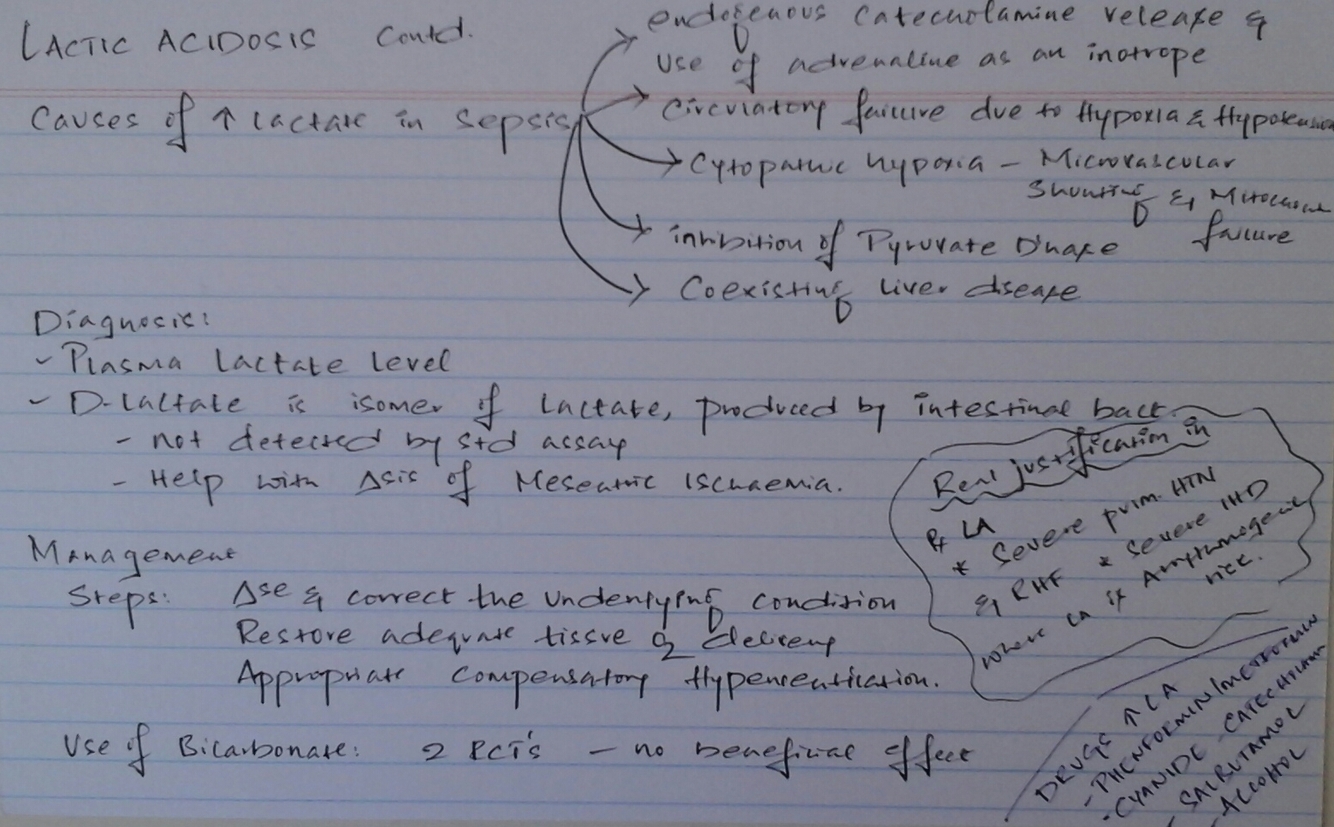 LACTIC ACIDOSIS Contd.
Causes of ↑ lactate in Sepsis
endogenous catecholamine release &
use of adrenaline as an inotrope
Circulatory failure due to Hypoxia & Hypotension
Cytopathic hypoxia – Microvascular
Shunting &
failure
inhibition of Pyruvate D'nase
Coexisting liver disease
Diagnosis:
- Plasma lactate level
- D-lactate is isomer of lactate, produced by intestinal bact
- not detected by std assay
- Help with Δsis of Mesentric Ischaemia.
Real justification in
Rx LA
* Severe prim. HTN
& RHF * Severe IHD
where LA is Arrythmogenic
risk.
Management
Steps: Δse & correct the underlying condition
Restore adequate tissue O2 delivery
Appropriate compensatory Hyperventilation.
Use of Bicarbonate: 2 RCT's – no beneficial effect
DRUGS ↑ LA
- PHENFORMIN/METFORMIN
- CYANIDE - CATECHOLAM
- SALBUTAMOL
- ALCOHOL